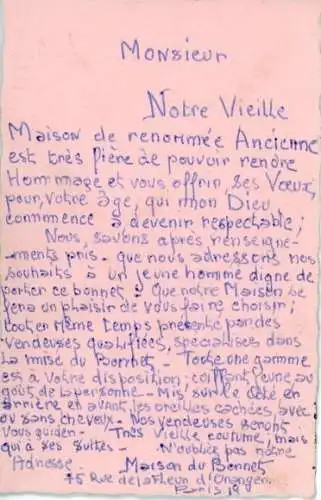 Monsieur
Notre Vieille
Maison de renommée Ancienne
est très fière de pouvoir rendre
Hommage et vous offrir ses Vœux,
pour, votre âge, qui mon Dieu
commence à devenir respectable;
Nous, savons après renseigne-
-ments pris - que nous adressons nos
souhaits à un jeune homme digne de
porter ce bonnet! Que notre Maison se
fera un plaisir de vous faire choisir;
tout en même temps présenté par des
vendeuses qualifiées, spécialisées dans
la mise du Bonnet - Toute une gamme
est à votre disposition - coiffant l'une au
goût de la personne - Mis sur le côté en
arrière en avant, les oreilles cachées, avec
ou sans cheveux - Nos vendeuses seront
vous guider - Très Vieille coutume, mais
qui a ses suites - N'oubliez pas notre
Adresse. Maison du Bonnet
75 Rue de la Fleur d'Oranger.
Paris 19